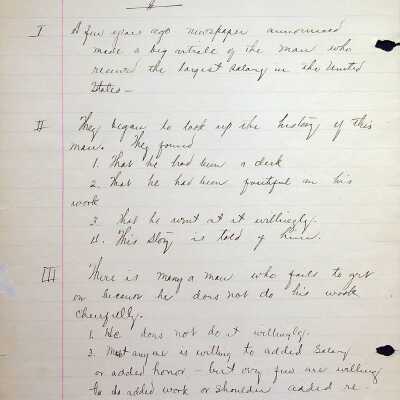 I A few years ago newspaper announced
made a big article of the man who
received the largest salary in the United
States—
II They began to look up the history of this
man. They found
1. That he had been a clerk
2. That he had been faithful in his
work
3. That he went at it willingly.
4. This story is told of him.
III There is many a man who fails to get
on because he does not do his work
cheerfully.
1. He does not do it willingly.
2. Most any one is willing to added salary
or added honor – but very few are willing
to do added work or shoulder added re-